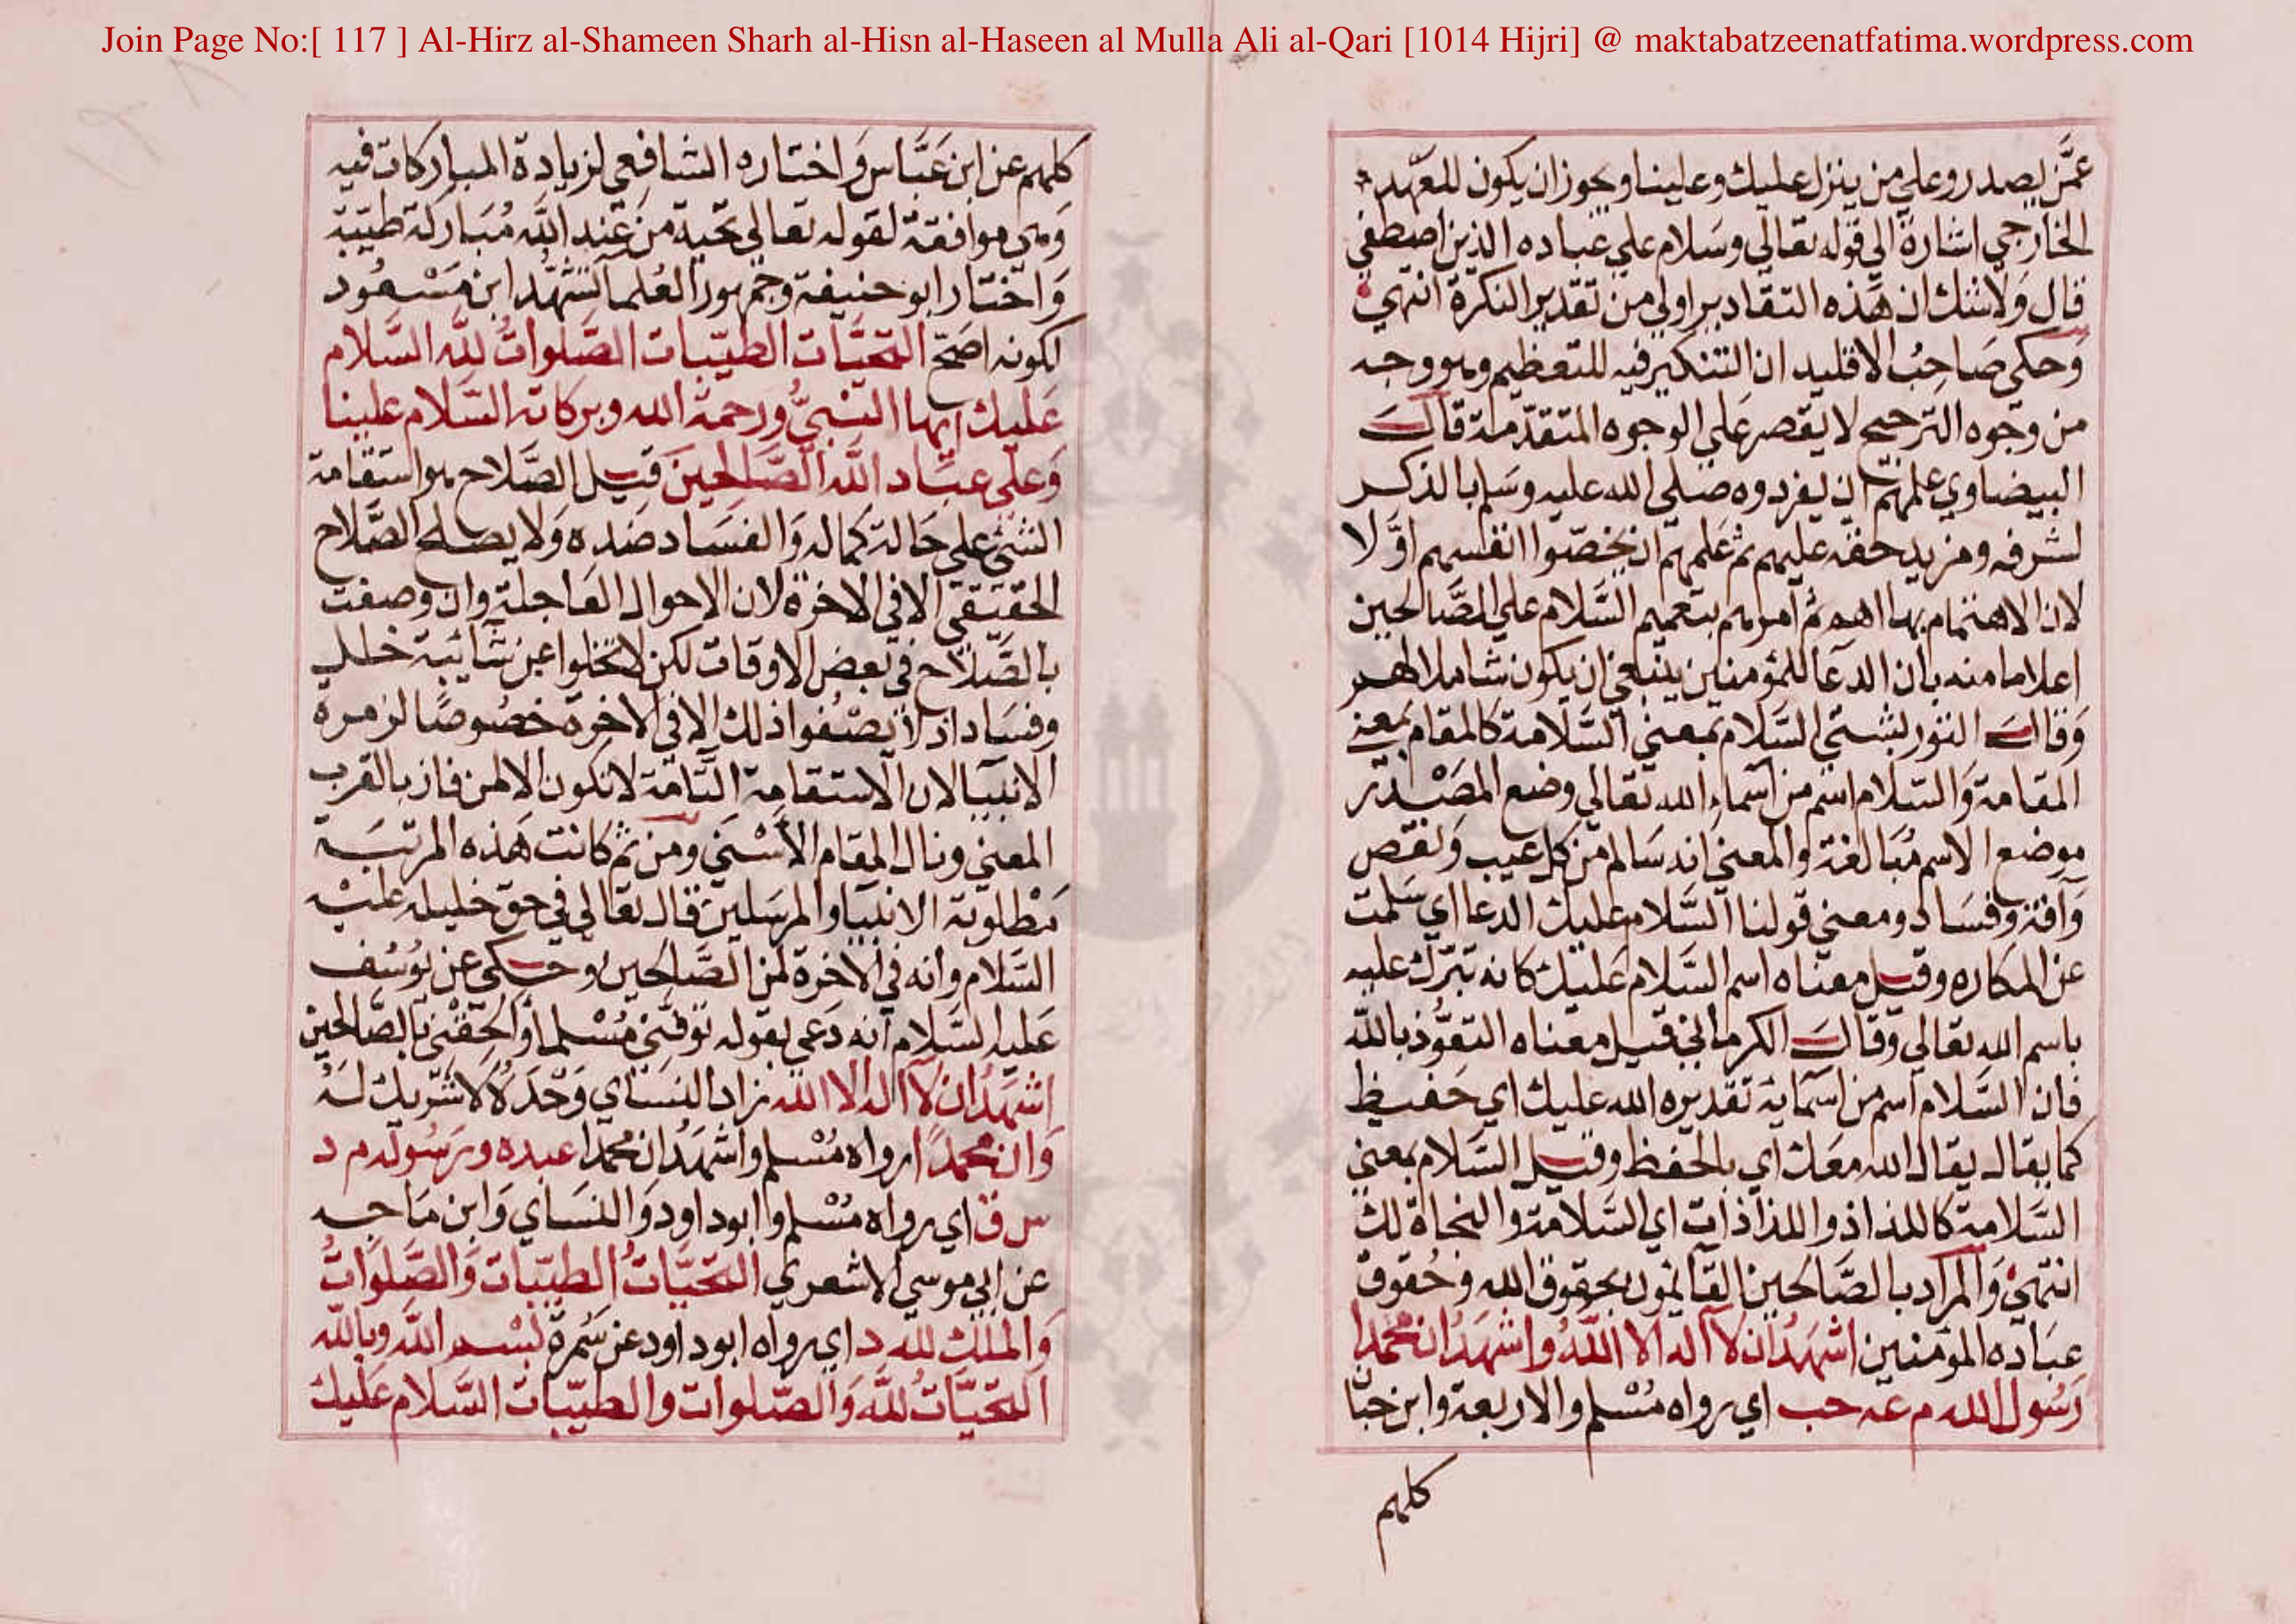 Join Page No:[ 117 ] Al-Hirz al-Shameen Sharh al-Hisn al-Haseen al Mulla Ali al-Qari [1014 Hijri] @ maktabatzeenatfatima.wordpress.com
عمّن يصدر وعلي من ينزل عليك وعلينا ويجوز ان يكون للعهد
الخارجي اشارة الي قوله تعالي وسلام علي عباده الذين اصطفي
قال ولاشك ان هذه التقادير اولي من تقدير النكرة انتهي
وحكي صاحب الاقليد ان التنكير فيه للتعظيم وهو وجه
من وجوه الترجيح لا يقصر علي الوجوه المتقدّمة قال
البيضاوي علمهم ان يفردوه صلي الله عليه وسلم بالذكر
لشرفه ومزيد حقه عليهم ثم علمهم ان يخصّوا انفسهم اوّلا
لان الاهتمام بها اهم ثم امرهم بتعميم السّلام علي الصّالحين
اعلاما منه بان الدعا للمؤمنين ينبغي ان يكون شاملا لهم
وقال التوربشتي السّلام بمعني السّلامة كالمقام بمعني
المقامة والسّلام اسم من اسماء الله تعالي وضع المصدر
موضع الاسم مبالغة والمعني انه سالم من كل عيب ونقص
وآفة وفساد ومعني قولنا السّلام عليك الدعا اي سلمت
عن المكاره وقيل معناه اسم السّلام عليك كانه تبرّك عليه
باسم الله تعالي وقال الكرماني قيل معناه التعوّذ بالله
فان السّلام اسم من اسمايه تقديره الله عليك اي حفيظ
كما يقال يقال الله معك اي بالحفظ وقيل السّلام بمعني
السّلامة كاللذاذ واللذاذات اي السّلامة والنجاة لك
انتهي والمراد بالصّالحين القائمون بحقوق الله وحقوق
عباده المؤمنين اشهد ان لا اله الا الله واشهد ان محمدا
رسول الله م عه حب اي رواه مسلم والاربعة وابن حبّا
كلهم
كلهم عن ابن عبّاس واختاره الشافعي لزيادة المباركات فيه
وهي موافقة لقوله تعالي تحية من عند الله مباركة طيّبة
واختار ابو حنيفة وجمهور العلما تشهّد ابن مسعود
لكونه اصحّ التحيّات الطيّبات الصّلوات لله السّلام
عليك ايها النبيّ ورحمة الله وبركاته السّلام علينا
وعلي عباد الله الصّالحين قيل الصّلاح هو استقامة
الشئ علي حالة كماله والفساد ضده ولا يصلح الصّلاح
الحقيقي الا في الاخرة لان الاحوال العاجلة وان وصفت
بالصّلاح في بعض الاوقات لكن لا تخلوا عن شائبة خلل
وفساد اذ لا يصفوا ذلك الا في الاخرة خصوصا لزمرة
الانبيا لان الاستقامة التّامّة لا تكون الا لمن فاز بالقرب
المعني ونال المقام الاسني ومن ثم كانت هذه المرتبة
مطلوبة الانبيا والمرسلين قال تعالي في حق خليله عليه
السّلام وانه في الاخرة لمن الصّالحين وحكي عن يوسف
عليه السّلام انه دعي بقوله توفني مسلما والحقني بالصّالحين
اشهد ان لا اله الا الله زاد النسائي وحده لا شريك له
وان محمدا رواه مسلم واشهد ان محمدا عبده ورسوله م د
س ق اي رواه مسلم وابو داود والنساي وابن ماجه
عن ابي موسي الاشعري التحيّات الطيّبات والصّلوات
والملك لله د اي رواه ابو داود عن سمرة بسم الله وبالله
التحيّات لله والصّلوات والطيّبات السّلام عليك